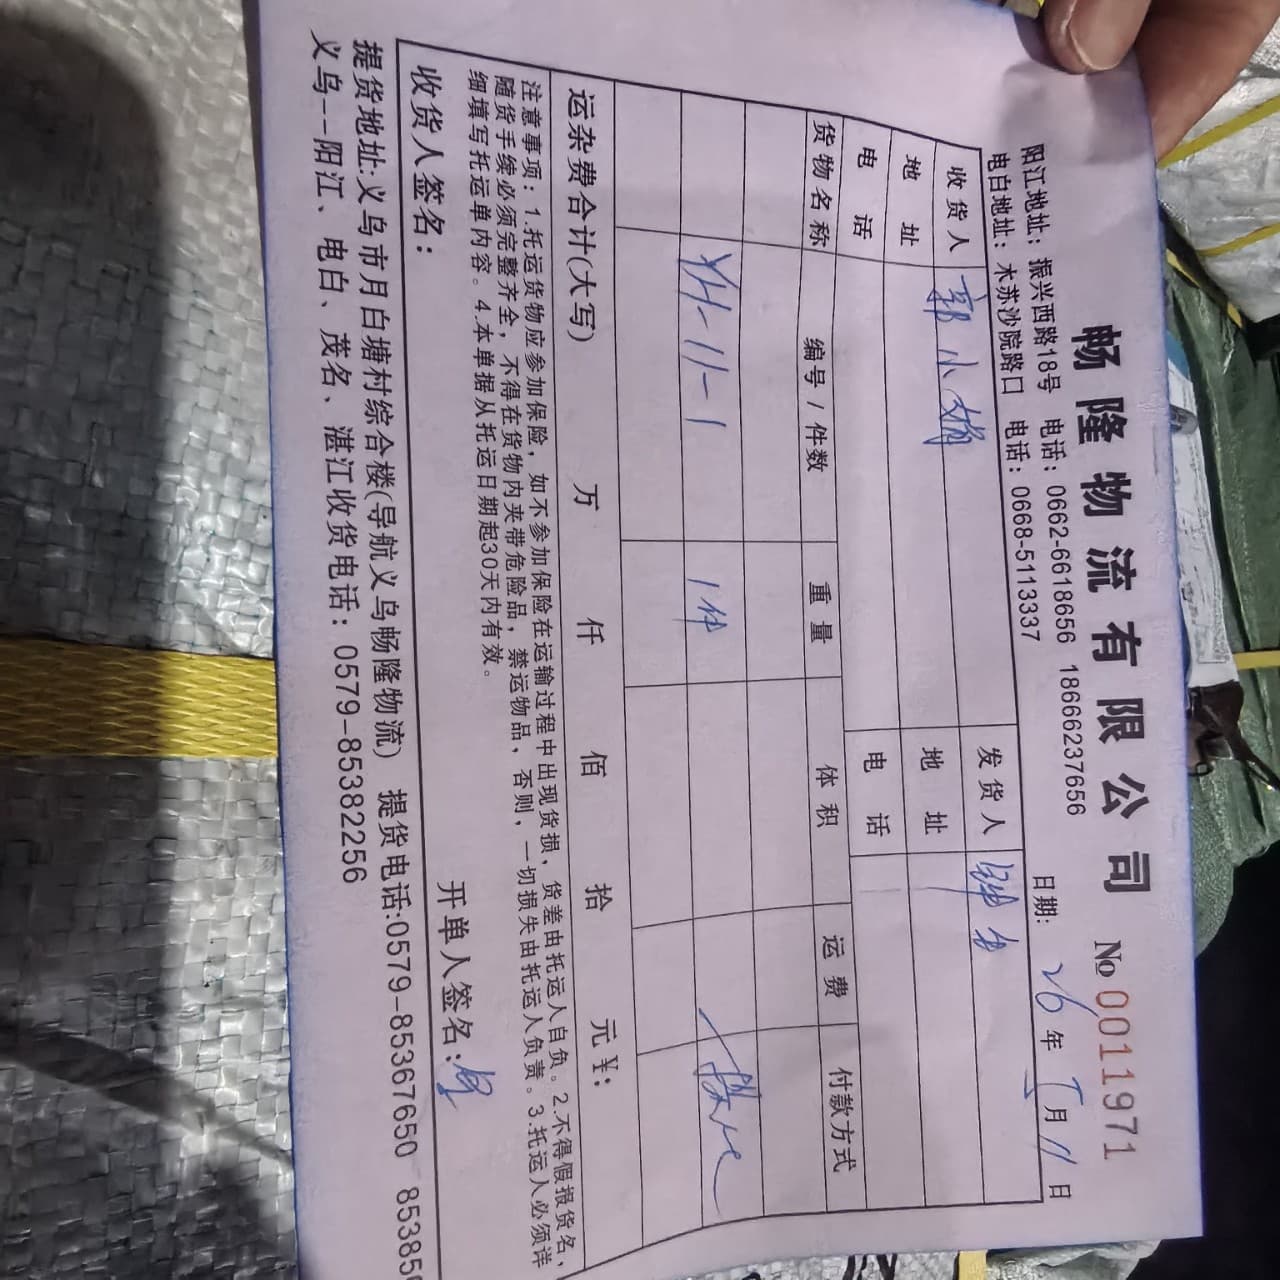 畅隆物流有限公司 № 0011971
阳江地址：振兴西路18号 电话：0662-6618656 18666237656
电白地址：木苏沙院路口 电话：0668-5113337 日期：26年 月11日
收货人 郭小娴 发货人
地址 地址
电话 电话
货物名称 编号/件数 重量 体积 运费 付款方式
11-1 1件
运杂费合计(大写) 万 仟 佰 拾 元¥：
注意事项：1.托运货物应参加保险，如不参加保险在运输过程中出现货损，货差由托运人自负。2.不得假报货名，
随货手续必须完整齐全，不得在货物内夹带危险品，禁运物品，否则，一切损失由托运人负责。3.托运人必须详
细填写托运单内容。4.本单据从托运日期起30天内有效。
收货人签名： 开单人签名:
提货地址:义乌市月白塘村综合楼(导航义乌畅隆物流) 提货电话:0579-85367650 85385
义乌--阳江、电白、茂名、湛江收货电话：0579-85382256